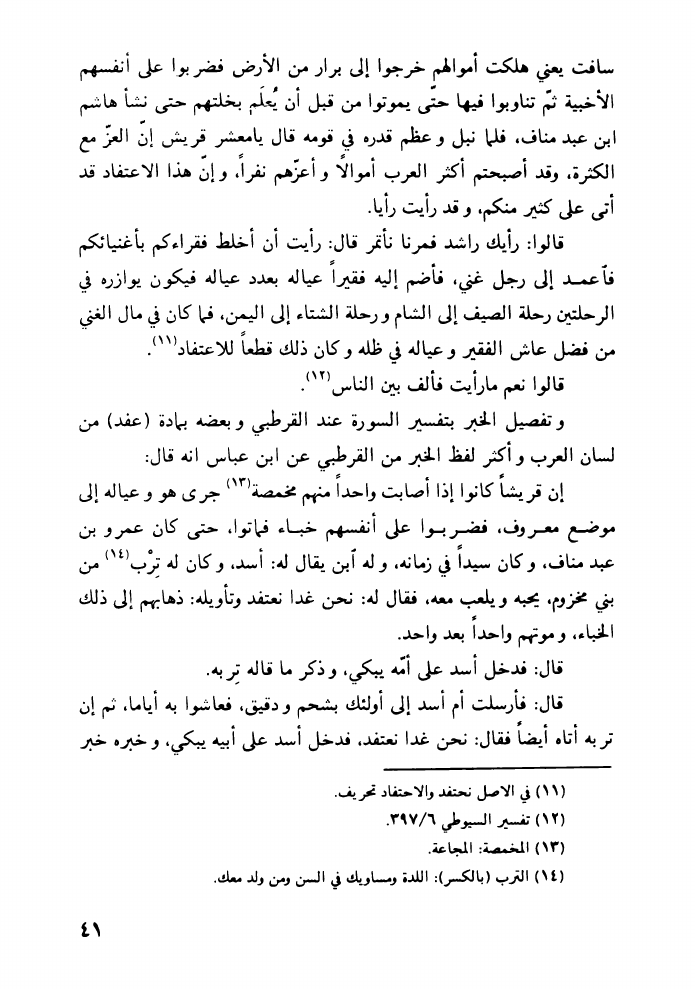 سافت يعني هلكت أموالهم خرجوا إلى برار من الأرض فضربوا على أنفسهم
الأخبية ثمّ تناوبوا فيها حتّى يموتوا من قبل أن يُعلَم بخلتهم حتى نشأ هاشم
ابن عبد مناف، فلما نبل وعظم قدره في قومه قال يامعشر قريش إنّ العزّ مع
الكثرة، وقد أصبحتم أكثر العرب أموالاً وأعزّهم نفراً، وإنّ هذا الاعتفاد قد
أتى على كثير منكم، وقد رأيت رأيا.
قالوا: رأيك راشد فمرنا نأتمر قال: رأيت أن أخلط فقراءكم بأغنيائكم
فآعمد إلى رجل غني، فأضم إليه فقيراً عياله بعدد عياله فيكون يوازره في
الرحلتين رحلة الصيف إلى الشام ورحلة الشتاء إلى اليمن، فما كان في مال الغني
من فضل عاش الفقير وعياله في ظله وكان ذلك قطعاً للاعتفاد(١١).
قالوا نعم مارأيت فألف بين الناس(١٢).
وتفصيل الخبر بتفسير السورة عند القرطبي وبعضه بمادة (عفد) من
لسان العرب وأكثر لفظ الخبر من القرطبي عن ابن عباس انه قال:
إن قريشاً كانوا إذا أصابت واحداً منهم مخمصة(١٣) جرى هو وعياله إلى
موضع معروف، فضربوا على أنفسهم خباء فماتوا، حتى كان عمرو بن
عبد مناف، وكان سيداً في زمانه، وله آبن يقال له: أسد، وكان له تِرْب(١٤) من
بني مخزوم، يحبه ويلعب معه، فقال له: نحن غدا نعتفد وتأويله: ذهابهم إلى ذلك
الخباء، وموتهم واحداً بعد واحد.
قال: فدخل أسد على أمّه يبكي، وذكر ما قاله تِربه.
قال: فأرسلت أم أسد إلى أولئك بشحم ودقيق، فعاشوا به أياما، ثم إن
تربه أتاه أيضاً فقال: نحن غدا نعتفد، فدخل أسد على أبيه يبكي، وخبره خبر
(١١) في الاصل نحتفد والاحتفاد تحريف.
(١٢) تفسير السيوطي ٣٩٧/٦.
(١٣) المخمصة: المجاعة.
(١٤) الترب (بالكسر): اللدة ومساويك في السن ومن ولد معك.
٤١